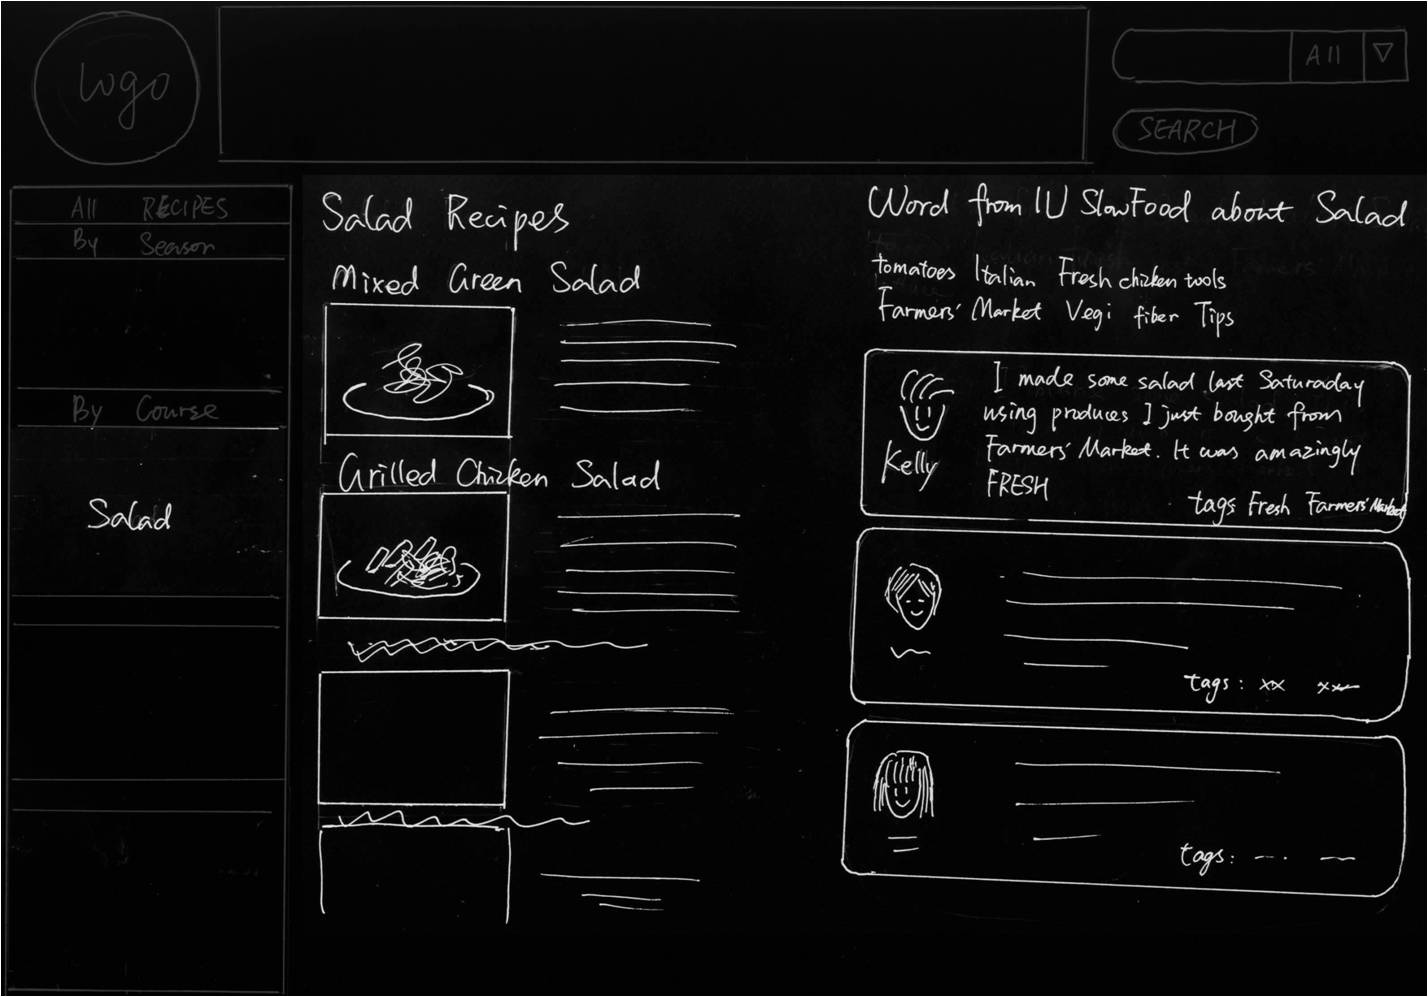 Logo
All
SEARCH
All RECIPES
By Season
By Course
Salad
Salad Recipes
Mixed Green Salad
Grilled Chicken Salad
Word from IU SlowFood about Salad
tomatoes Italian Fresh chicken tools
Farmers' Market Vegi fiber Tips
I made some salad last Saturaday
using produces I just bought from
Farmers' Market. It was amazingly
FRESH
Kelly
tags Fresh Farmers' Market
tags: xx xx
tags: